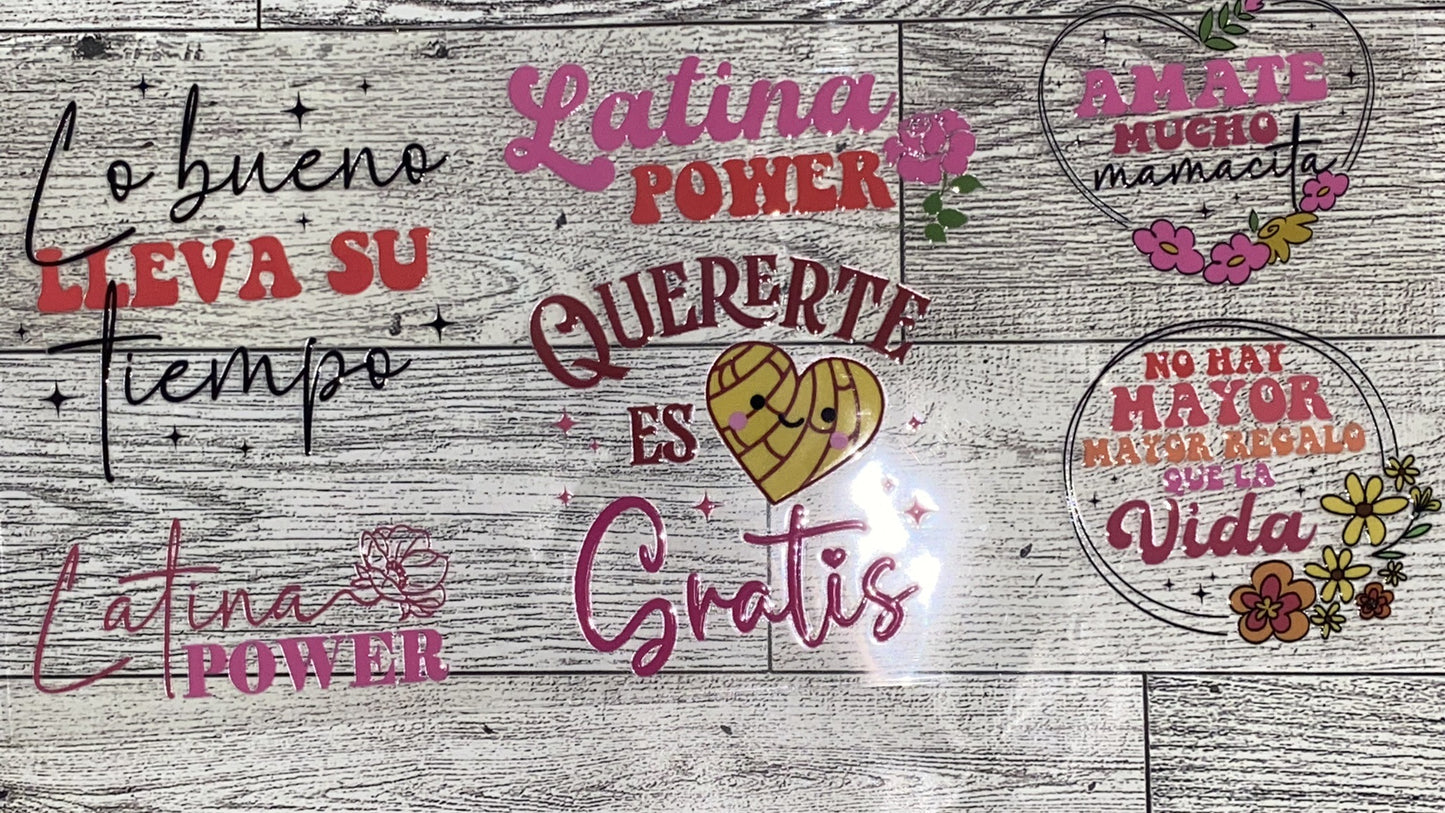 Lo bueno
LLEVA SU
tiempo
Latina
POWER
AMATE
MUCHO
mamacita
QUERERTE
ES
Gratis
NO HAY
MAYOR
MAYOR REGALO
QUE LA
Vida
Latina
POWER